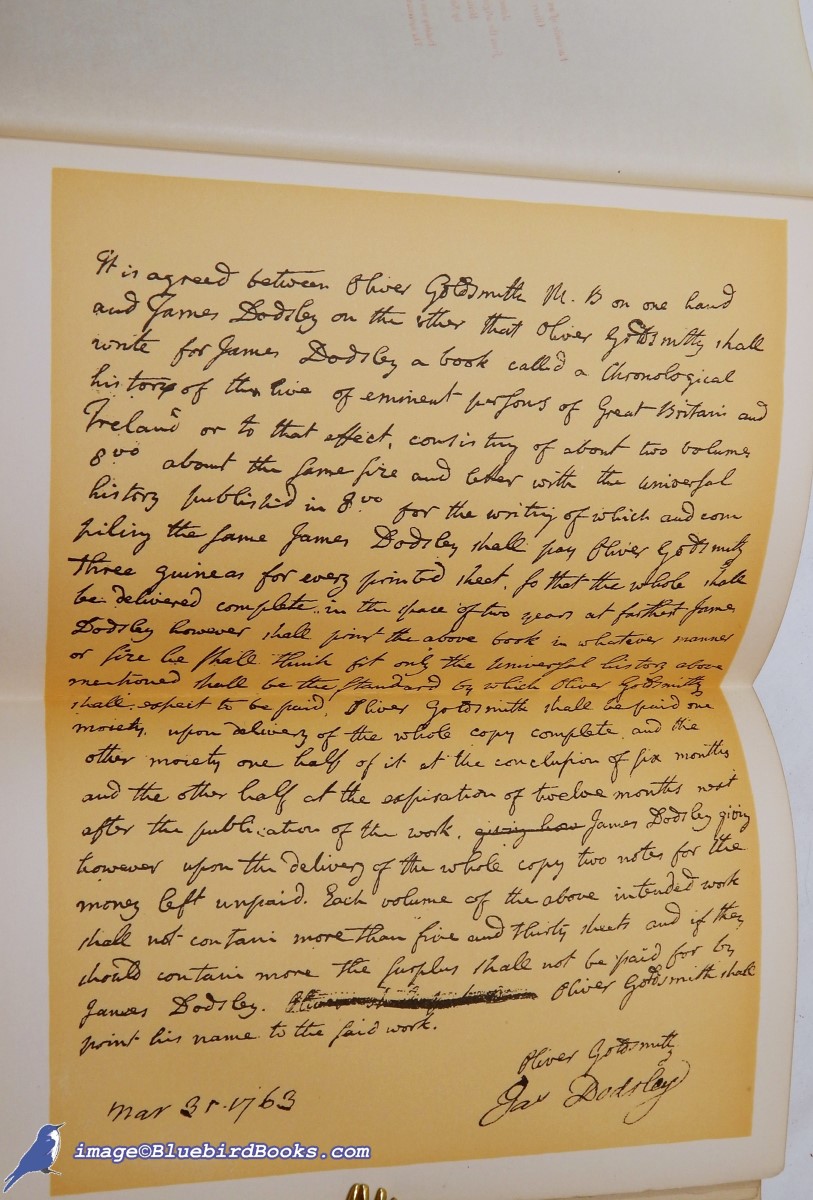 It is agreed between Oliver Goldsmith M. B on one hand
and James Dodsley on the other that Oliver Goldsmith shall
write for James Dodsley a book called a Chronological
history of the live of eminent persons of Great Britain and
Ireland or to that effect, consisting of about two volumes
8vo about the same size and letter with the universal
history published in 8vo for the writing of which and com
piling the same James Dodsley shall pay Oliver Goldsmith
three guineas for every printed sheet, so that the whole shall
be delivered complete in the space of two years at farthest James
Dodsley however shall print the above book in whatever manner
or size he shall think fit only the Universal history above
mentioned shall be the standard by which Oliver Goldsmith
shall expect to be paid. Oliver Goldsmith shall be paid one
moiety upon delivery of the whole copy complete and the
other moiety one half of it at the conclusion of six months
and the other half at the expiration of twelve months next
after the publication of the work. giving how James Dodsley giving
however upon the delivery of the whole copy two notes for the
money left unpaid. Each volume of the above intended work
shall not contain more than five and thirty sheets and if they
should contain more the surplus shall not be paid for by
James Dodsley. Oliver Goldsmith shall
print his name to the said work.
Oliver Goldsmith
Jas Dodsley
Mar 31. 1763
image©BluebirdBooks.com